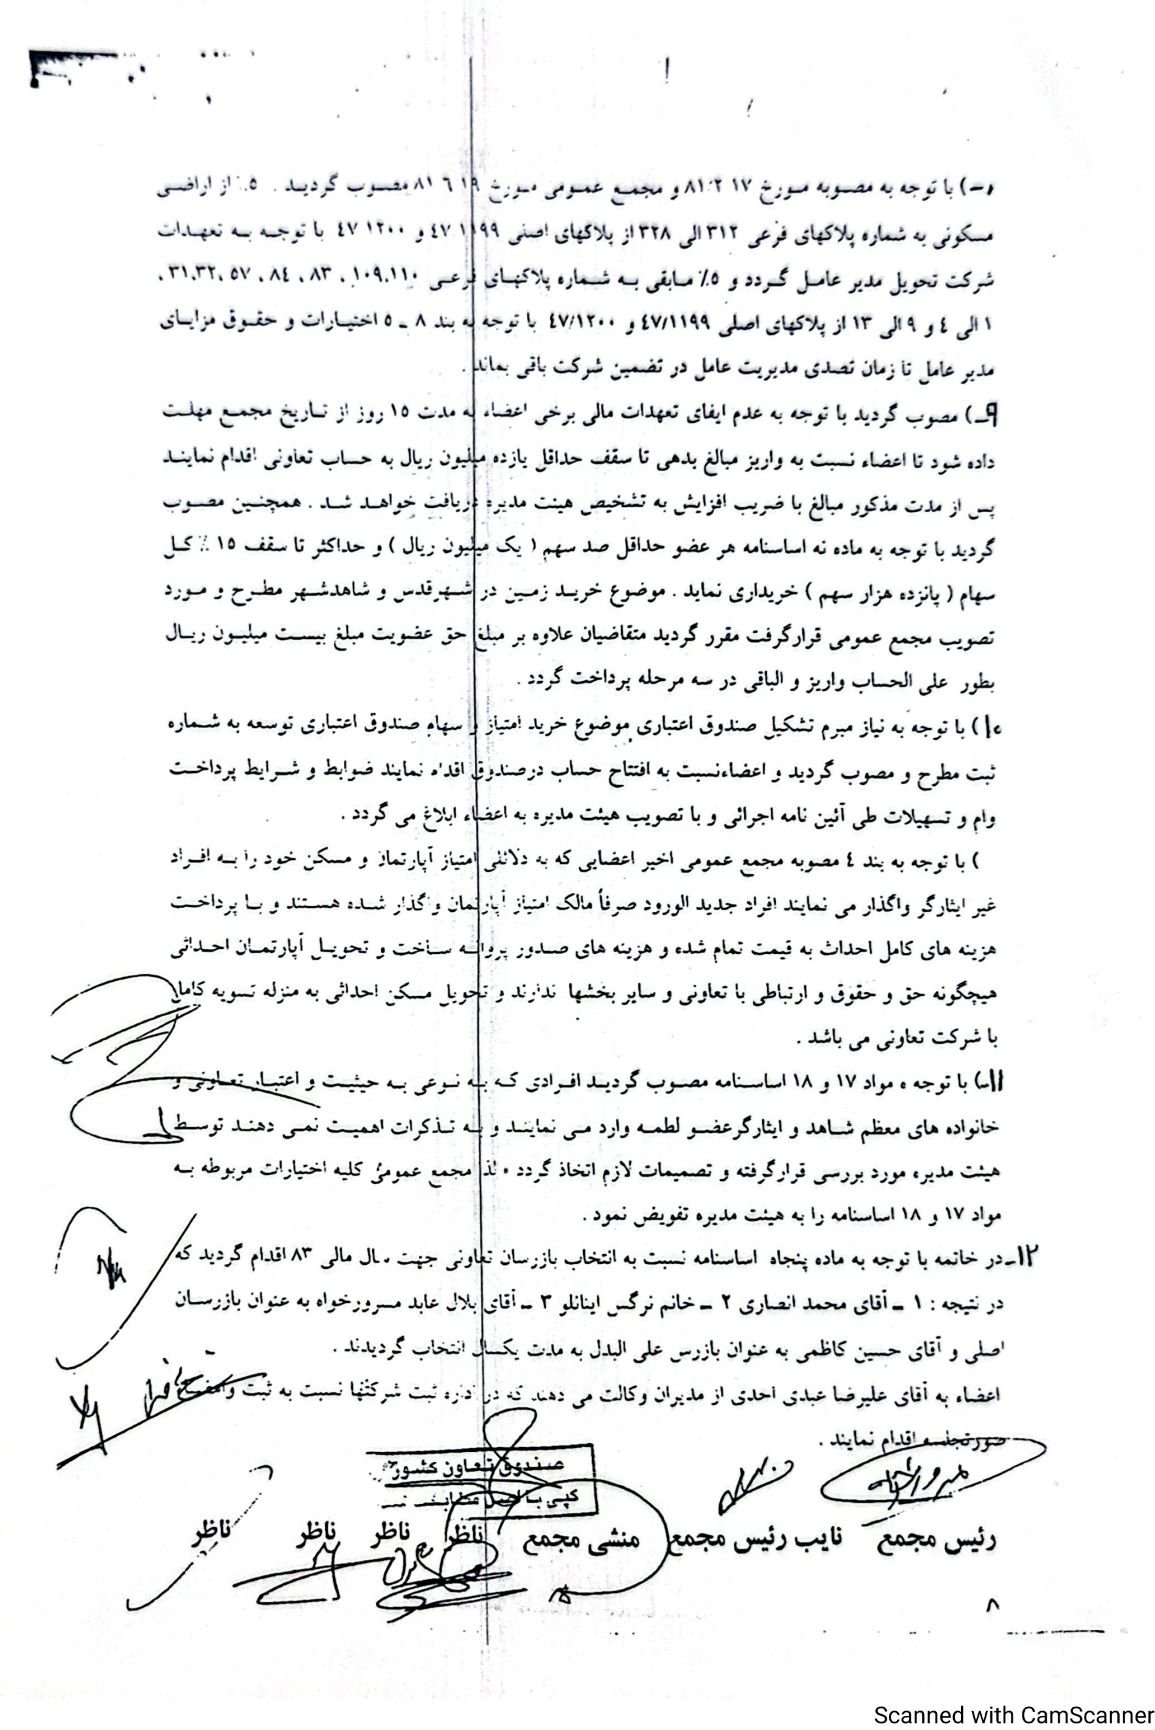 با توجه به مصوبه مورخ ۸۱/۲/۱۷ و مجمع عمومی مورخ ۸۱/۶/۱۹ مصوب گردید . ۵٪ از اراضی
مسکونی به شماره پلاکهای فرعی ۳۱۲ الی ۳۲۸ از پلاکهای اصلی ۴۷/۱۱۹۹ و ۴۷/۱۲۰۰ با توجه به تعهدات
شرکت تحویل مدیر عامل گردد و ۵٪ مابقی به شماره پلاکهای فرعی ۱۰۹،۱۱۰ ، ۸۳ ، ۸۴ ، ۵۷ ،۳۱،۳۲ ،
۱ الی ۴ و ۹ الی ۱۳ از پلاکهای اصلی ۴۷/۱۱۹۹ و ۴۷/۱۲۰۰ با توجه به بند ۸ ـ ۵ اختیارات و حقوق مزایای
مدیر عامل تا زمان تصدی مدیریت عامل در تضمین شرکت باقی بماند .
۹ـ) مصوب گردید با توجه به عدم ایفای تعهدات مالی برخی اعضاء به مدت ۱۵ روز از تاریخ مجمع مهلت
داده شود تا اعضاء نسبت به واریز مبالغ بدهی تا سقف حداقل یازده میلیون ریال به حساب تعاونی اقدام نمایند
پس از مدت مذکور مبالغ با ضریب افزایش به تشخیص هیئت مدیره دریافت خواهد شد . همچنین مصوب
گردید با توجه به ماده نه اساسنامه هر عضو حداقل صد سهم ( یک میلیون ریال ) و حداکثر تا سقف ۱۵ ٪ کل
سهام ( پانزده هزار سهم ) خریداری نماید . موضوع خرید زمین در شهرقدس و شاهدشهر مطرح و مورد
تصویب مجمع عمومی قرارگرفت مقرر گردید متقاضیان علاوه بر مبلغ حق عضویت مبلغ بیست میلیون ریال
بطور علی الحساب واریز و الباقی در سه مرحله پرداخت گردد .
۱۰) با توجه به نیاز مبرم تشکیل صندوق اعتباری موضوع خرید امتیاز و سهام صندوق اعتباری توسعه به شماره
ثبت مطرح و مصوب گردید و اعضاءنسبت به افتتاح حساب درصندوق اقدام نمایند ضوابط و شرایط پرداخت
وام و تسهیلات طی آئین نامه اجرائی و با تصویب هیئت مدیره به اعضاء ابلاغ می گردد .
) با توجه به بند ۴ مصوبه مجمع عمومی اخیر اعضایی که به دلائلی امتیاز آپارتمان و مسکن خود را به افراد
غیر ایثارگر واگذار می نمایند افراد جدید الورود صرفاً مالک امتیاز آپارتمان واگذار شده هستند و با پرداخت
هزینه های کامل احداث به قیمت تمام شده و هزینه های صدور پروانه ساخت و تحویل آپارتمان احداثی
هیچگونه حق و حقوق و ارتباطی با تعاونی و سایر بخشها ندارند و تحویل مسکن احداثی به منزله تسویه کامل
با شرکت تعاونی می باشد .
۱۱ـ) با توجه ه مواد ۱۷ و ۱۸ اساسنامه مصوب گردید افرادی که به نوعی به حیثیت و اعتبار تعاونی و
خانواده های معظم شاهد و ایثارگرعضو لطمه وارد می نمایند و به تذکرات اهمیت نمی دهند توسط
هیئت مدیره مورد بررسی قرارگرفته و تصمیمات لازم اتخاذ گردد لذا مجمع عمومی کلیه اختیارات مربوطه به
مواد ۱۷ و ۱۸ اساسنامه را به هیئت مدیره تفویض نمود .
۱۲ـ در خاتمه با توجه به ماده پنجاه اساسنامه نسبت به انتخاب بازرسان تعاونی جهت سال مالی ۸۳ اقدام گردید که
در نتیجه : ۱ ـ آقای محمد انصاری ۲ ـ خانم نرگس اینانلو ۳ ـ آقای بلال عابد مسرورخواه به عنوان بازرسان
اصلی و آقای حسین کاظمی به عنوان بازرس علی البدل به مدت یکسال انتخاب گردیدند .
اعضاء به آقای علیرضا عبدی احدی از مدیران وکالت می دهند که در اداره ثبت شرکتها نسبت به ثبت و امضاء
صورتجلسه اقدام نمایند .
صندوق تعاون کشور
کپی با اصل مطابقت
رئیس مجمع نایب رئیس مجمع منشی مجمع ناظر ناظر ناظر ناظر
۸
Scanned with CamScanner